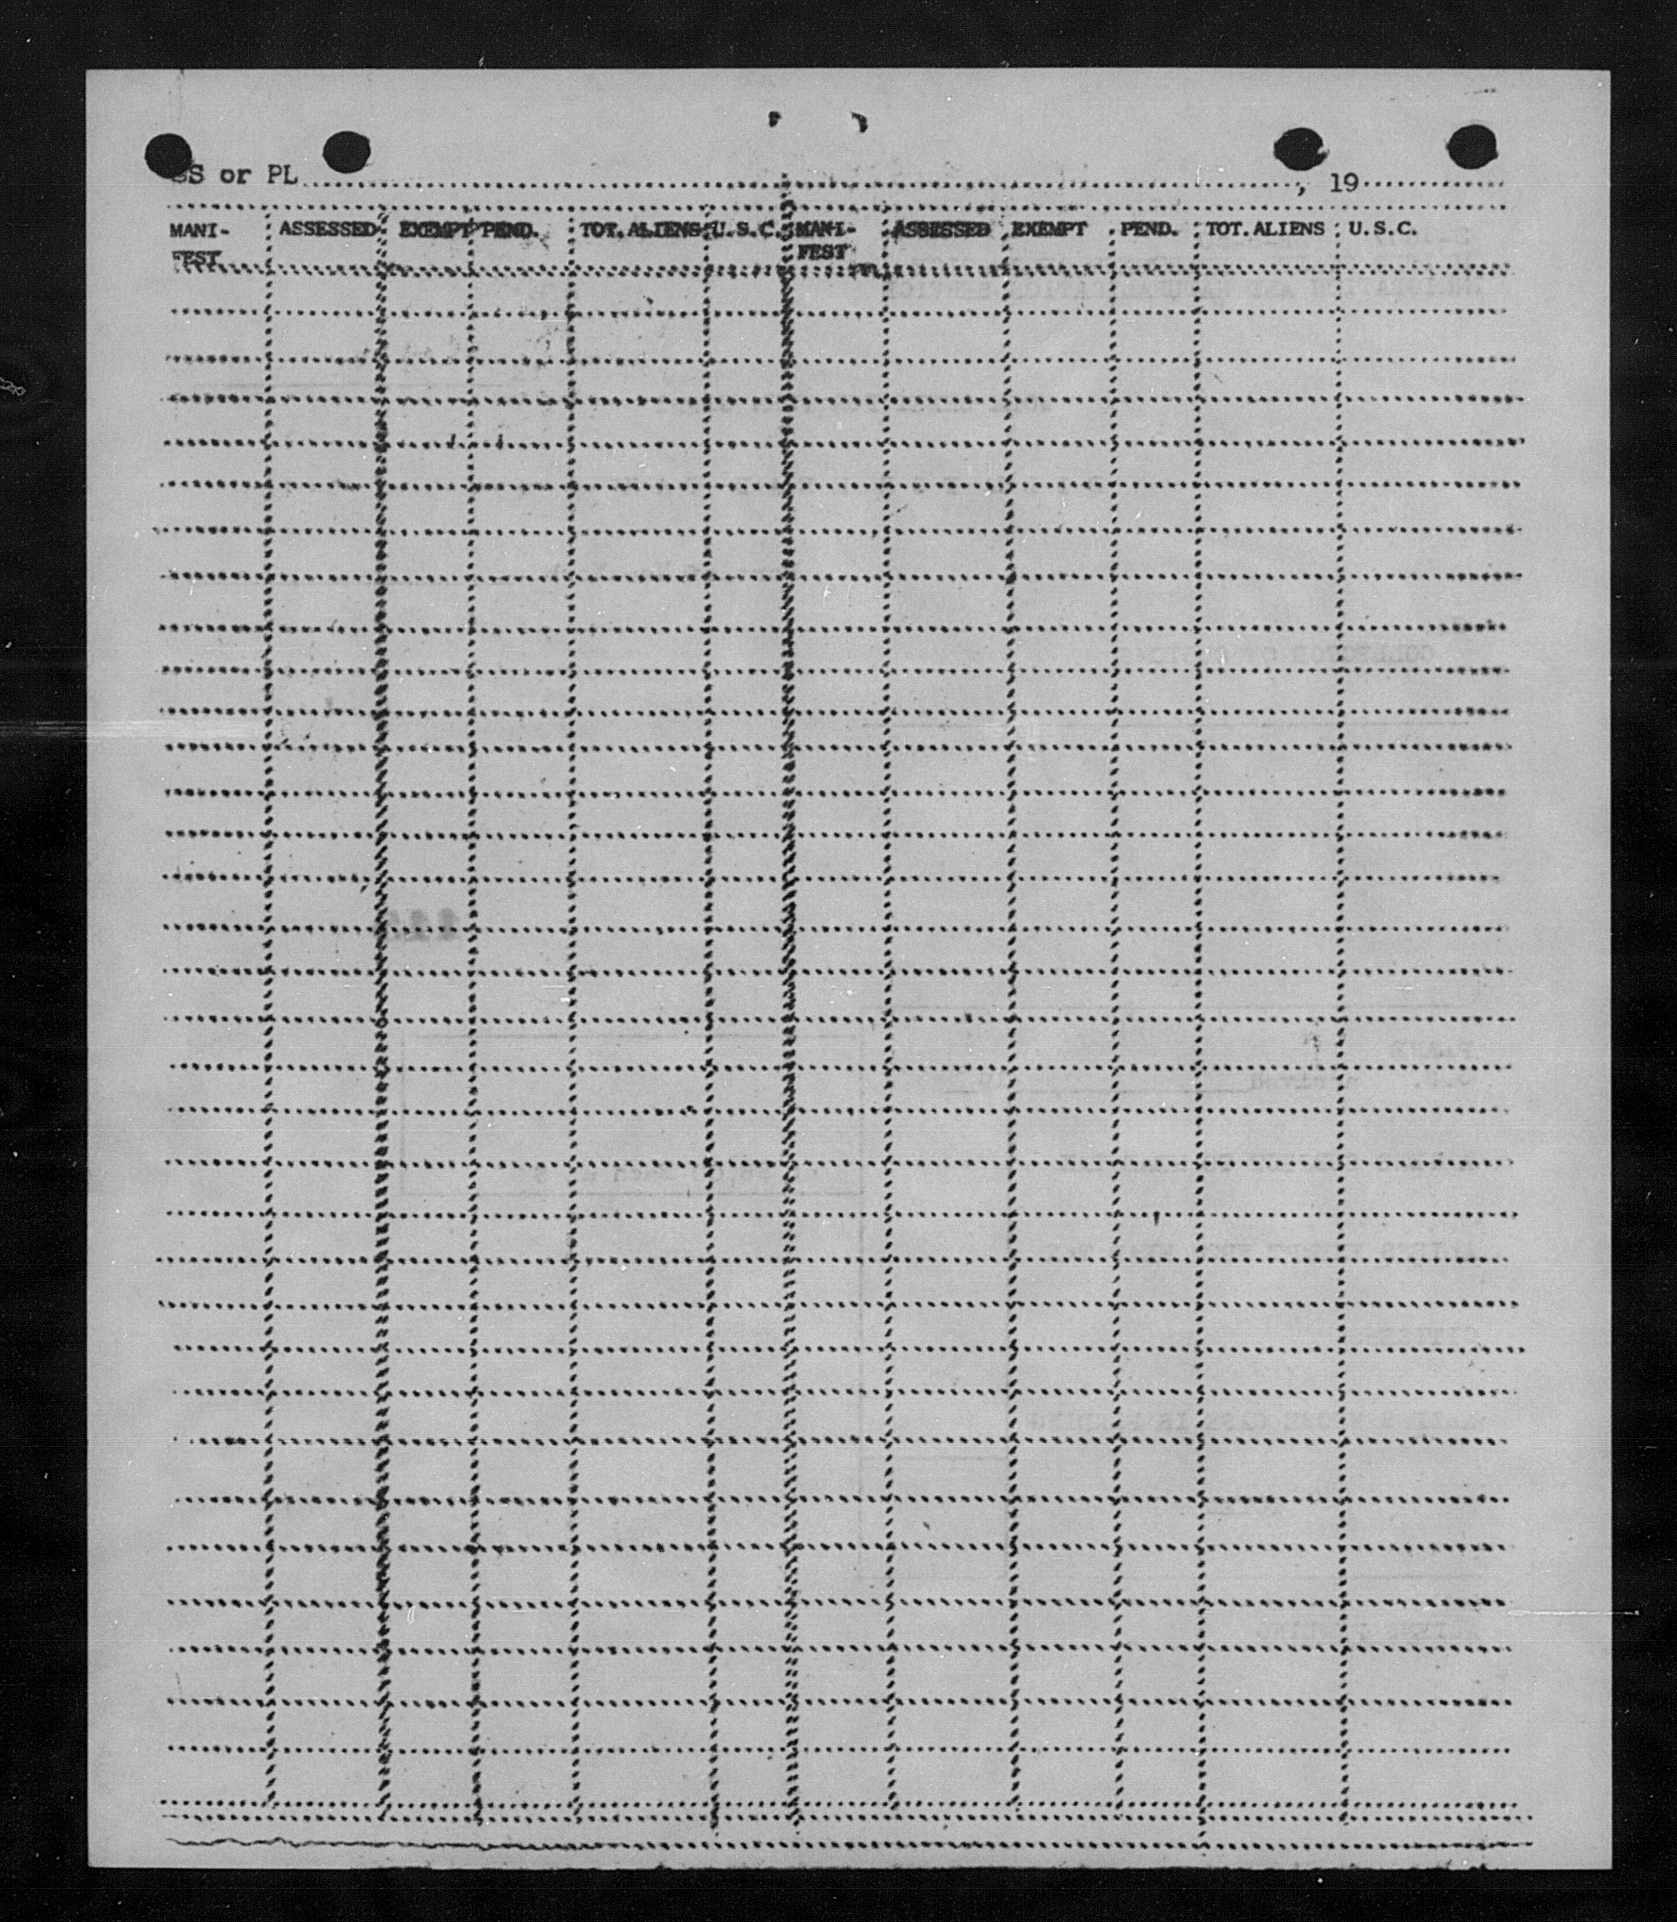 SS or PL.................................................., 19............
MANI- ASSESSED EXEMPT PEND. TOT. ALIENS U.S.C. MANI- ASSESSED EXEMPT PEND. TOT. ALIENS U.S.C.
FEST FEST